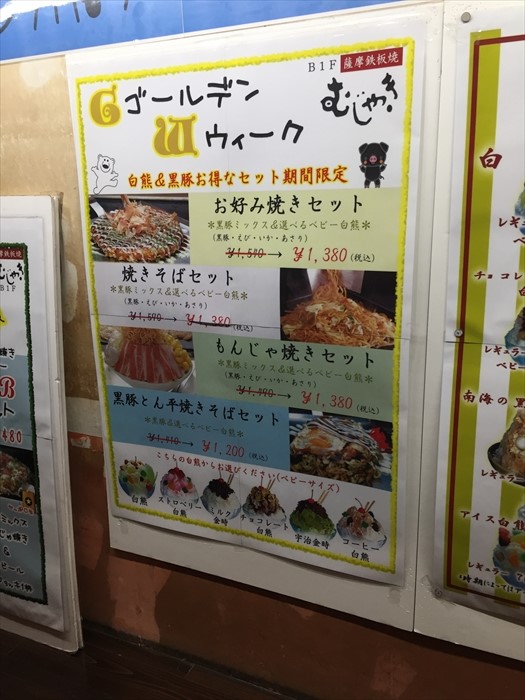 B1F 薩摩鉄板焼
むじゃき
G ゴールデン
W ウィーク
白熊&黒豚お得なセット期間限定
お好み焼きセット
*黒豚ミックス&選べるベビー白熊*
(黒豚・えび・いか・あさり)
→ ¥1,380 (税込)
焼きそばセット
*黒豚ミックス&選べるベビー白熊*
(黒豚・えび・いか・あさり)
(税込)
もんじゃ焼きセット
*黒豚ミックス&選べるベビー白熊*
(黒豚・えび・いか・あさり)
→ ¥1,380 (税込)
黒豚とん平焼きそばセット
*黒豚&選べるベビー白熊*
→ ¥1,200 (税込)
こちらの白熊からお選びください(ベビーサイズ)
白熊
ストロベリー白熊
ミルク金時
チョコレート白熊
宇治金時
コーヒー白熊
むじゃき
B1F
480
白
チョコレ
レギュラ
ベビー
南海の黒
レギ
アイス白熊
レギュラー